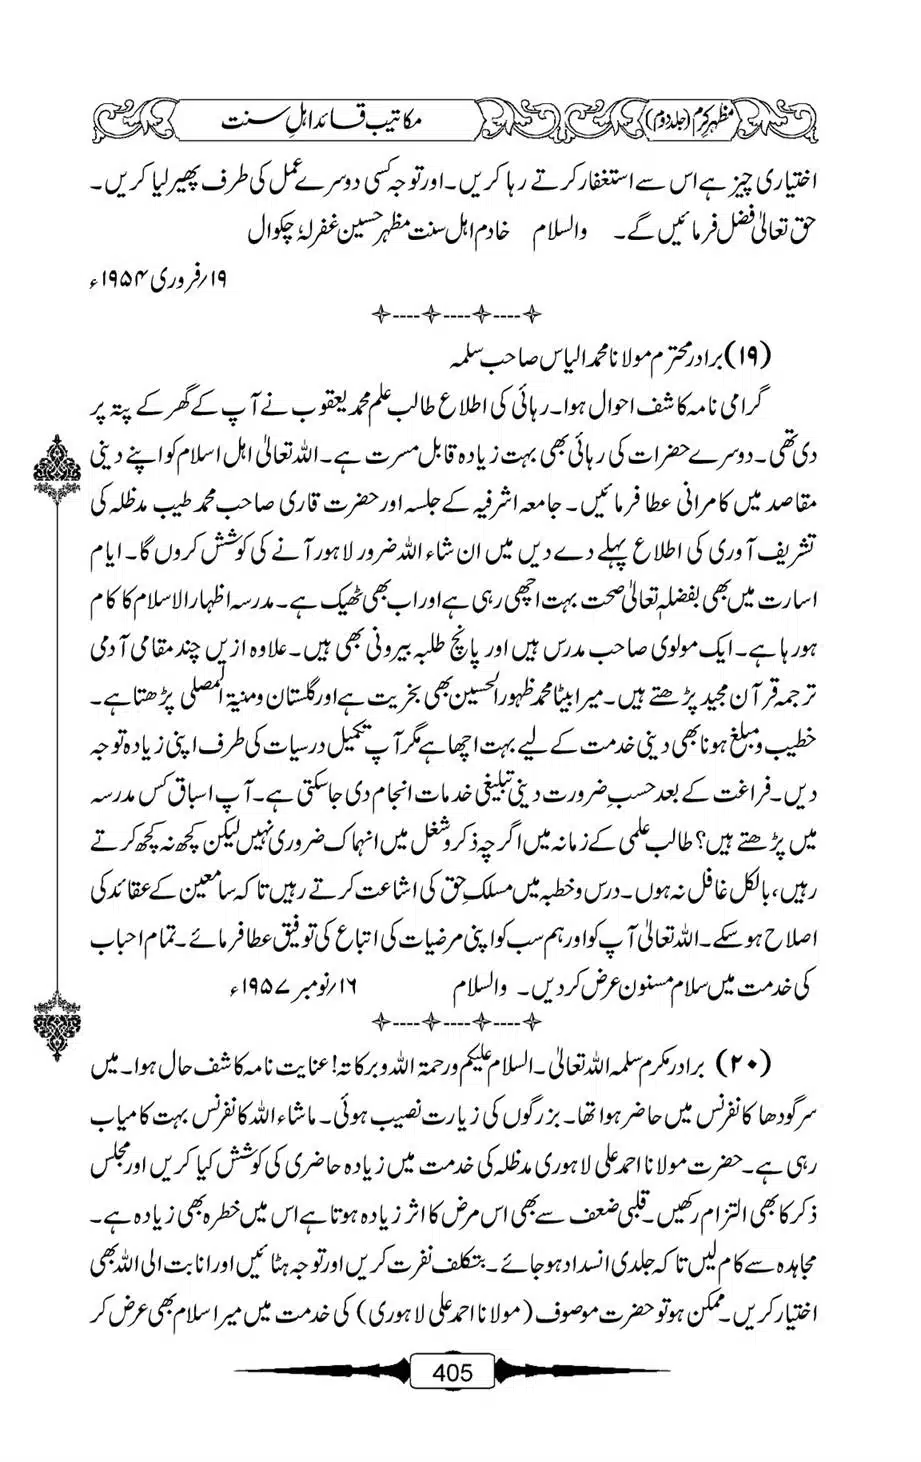 مظہر کرم (جلد دوم)
مکاتیب قائد اہل سنت
اختیاری چیز ہے اس سے استغفار کرتے رہا کریں۔ اور توجہ کسی دوسرے عمل کی طرف پھیر لیا کریں۔
حق تعالیٰ فضل فرمائیں گے۔ والسلام خادم اہل سنت مظہر حسین غفرلہٗ چکوال
۱۹/فروری ۱۹۵۴ء
(۱۹) برادر محترم مولانا محمد الیاس صاحب سلمہ
گرامی نامہ کاشف احوال ہوا۔ رہائی کی اطلاع طالب علم محمد یعقوب نے آپ کے گھر کے پتہ پر
دی تھی۔ دوسرے حضرات کی رہائی بھی بہت زیادہ قابل مسرت ہے۔ اللہ تعالیٰ اہل اسلام کو اپنے دینی
مقاصد میں کامرانی عطا فرمائیں۔ جامعہ اشرفیہ کے جلسہ اور حضرت قاری صاحب محمد طیب مدظلہ کی
تشریف آوری کی اطلاع پہلے دے دیں میں ان شاء اللہ ضرور لاہور آنے کی کوشش کروں گا۔ ایام
اسارت میں بھی بفضلہٖ تعالیٰ صحت بہت اچھی رہی ہے اور اب بھی ٹھیک ہے۔ مدرسہ اظہار الاسلام کا کام
ہو رہا ہے۔ ایک مولوی صاحب مدرس ہیں اور پانچ طلبہ بیرونی بھی ہیں۔ علاوہ ازیں چند مقامی آدمی
ترجمہ قرآن مجید پڑھتے ہیں۔ میرا بیٹا محمد ظہور الحسین بھی بخریت ہے اور گلستان و منیۃ المصلی پڑھتا ہے۔
خطیب و مبلغ ہونا بھی دینی خدمت کے لیے بہت اچھا ہے مگر آپ تکمیل درسیات کی طرف اپنی زیادہ توجہ
دیں۔ فراغت کے بعد حسبِ ضرورت دینی تبلیغی خدمات انجام دی جا سکتی ہے۔ آپ اسباق کس مدرسہ
میں پڑھتے ہیں؟ طالب علمی کے زمانہ میں اگرچہ ذکر و شغل میں انہماک ضروری نہیں لیکن کچھ نہ کچھ کرتے
رہیں، بالکل غافل نہ ہوں۔ درس و خطبہ میں مسلکِ حق کی اشاعت کرتے رہیں تاکہ سامعین کے عقائد کی
اصلاح ہو سکے۔ اللہ تعالیٰ آپ کو اور ہم سب کو اپنی مرضیات کی اتباع کی توفیق عطا فرمائے۔ تمام احباب
کی خدمت میں سلام مسنون عرض کر دیں۔ والسلام ۱۶/نومبر ۱۹۵۷ء
(۲۰) برادر مکرم سلمہ اللہ تعالیٰ۔ السلام علیکم ورحمۃ اللہ وبرکاتہ! عنایت نامہ کاشف حال ہوا۔ میں
سرگودھا کانفرنس میں حاضر ہوا تھا۔ بزرگوں کی زیارت نصیب ہوئی۔ ماشاء اللہ کانفرنس بہت کامیاب
رہی ہے۔ حضرت مولانا احمد علی لاہوری مدظلہ کی خدمت میں زیادہ حاضری کی کوشش کیا کریں اور مجلس
ذکر کا بھی التزام رکھیں۔ قلبی ضعف سے بھی اس مرض کا اثر زیادہ ہوتا ہے اس میں خطرہ بھی زیادہ ہے۔
مجاہدہ سے کام لیں تاکہ جلدی انسداد ہو جائے۔ بتکلف نفرت کریں اور توجہ ہٹائیں اور انابت الی اللہ بھی
اختیار کریں۔ ممکن ہو تو حضرت موصوف (مولانا احمد علی لاہوری) کی خدمت میں میرا سلام بھی عرض کر
405